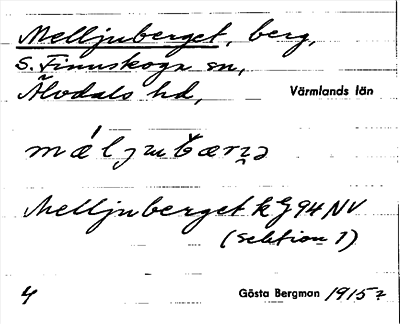 Melljuberget, berg,
S. Finnskoga sn,
Älvdals hd, Värmlands län
Melljuberget k G 94 NV
(sektion 1)
4 Gösta Bergman 1915